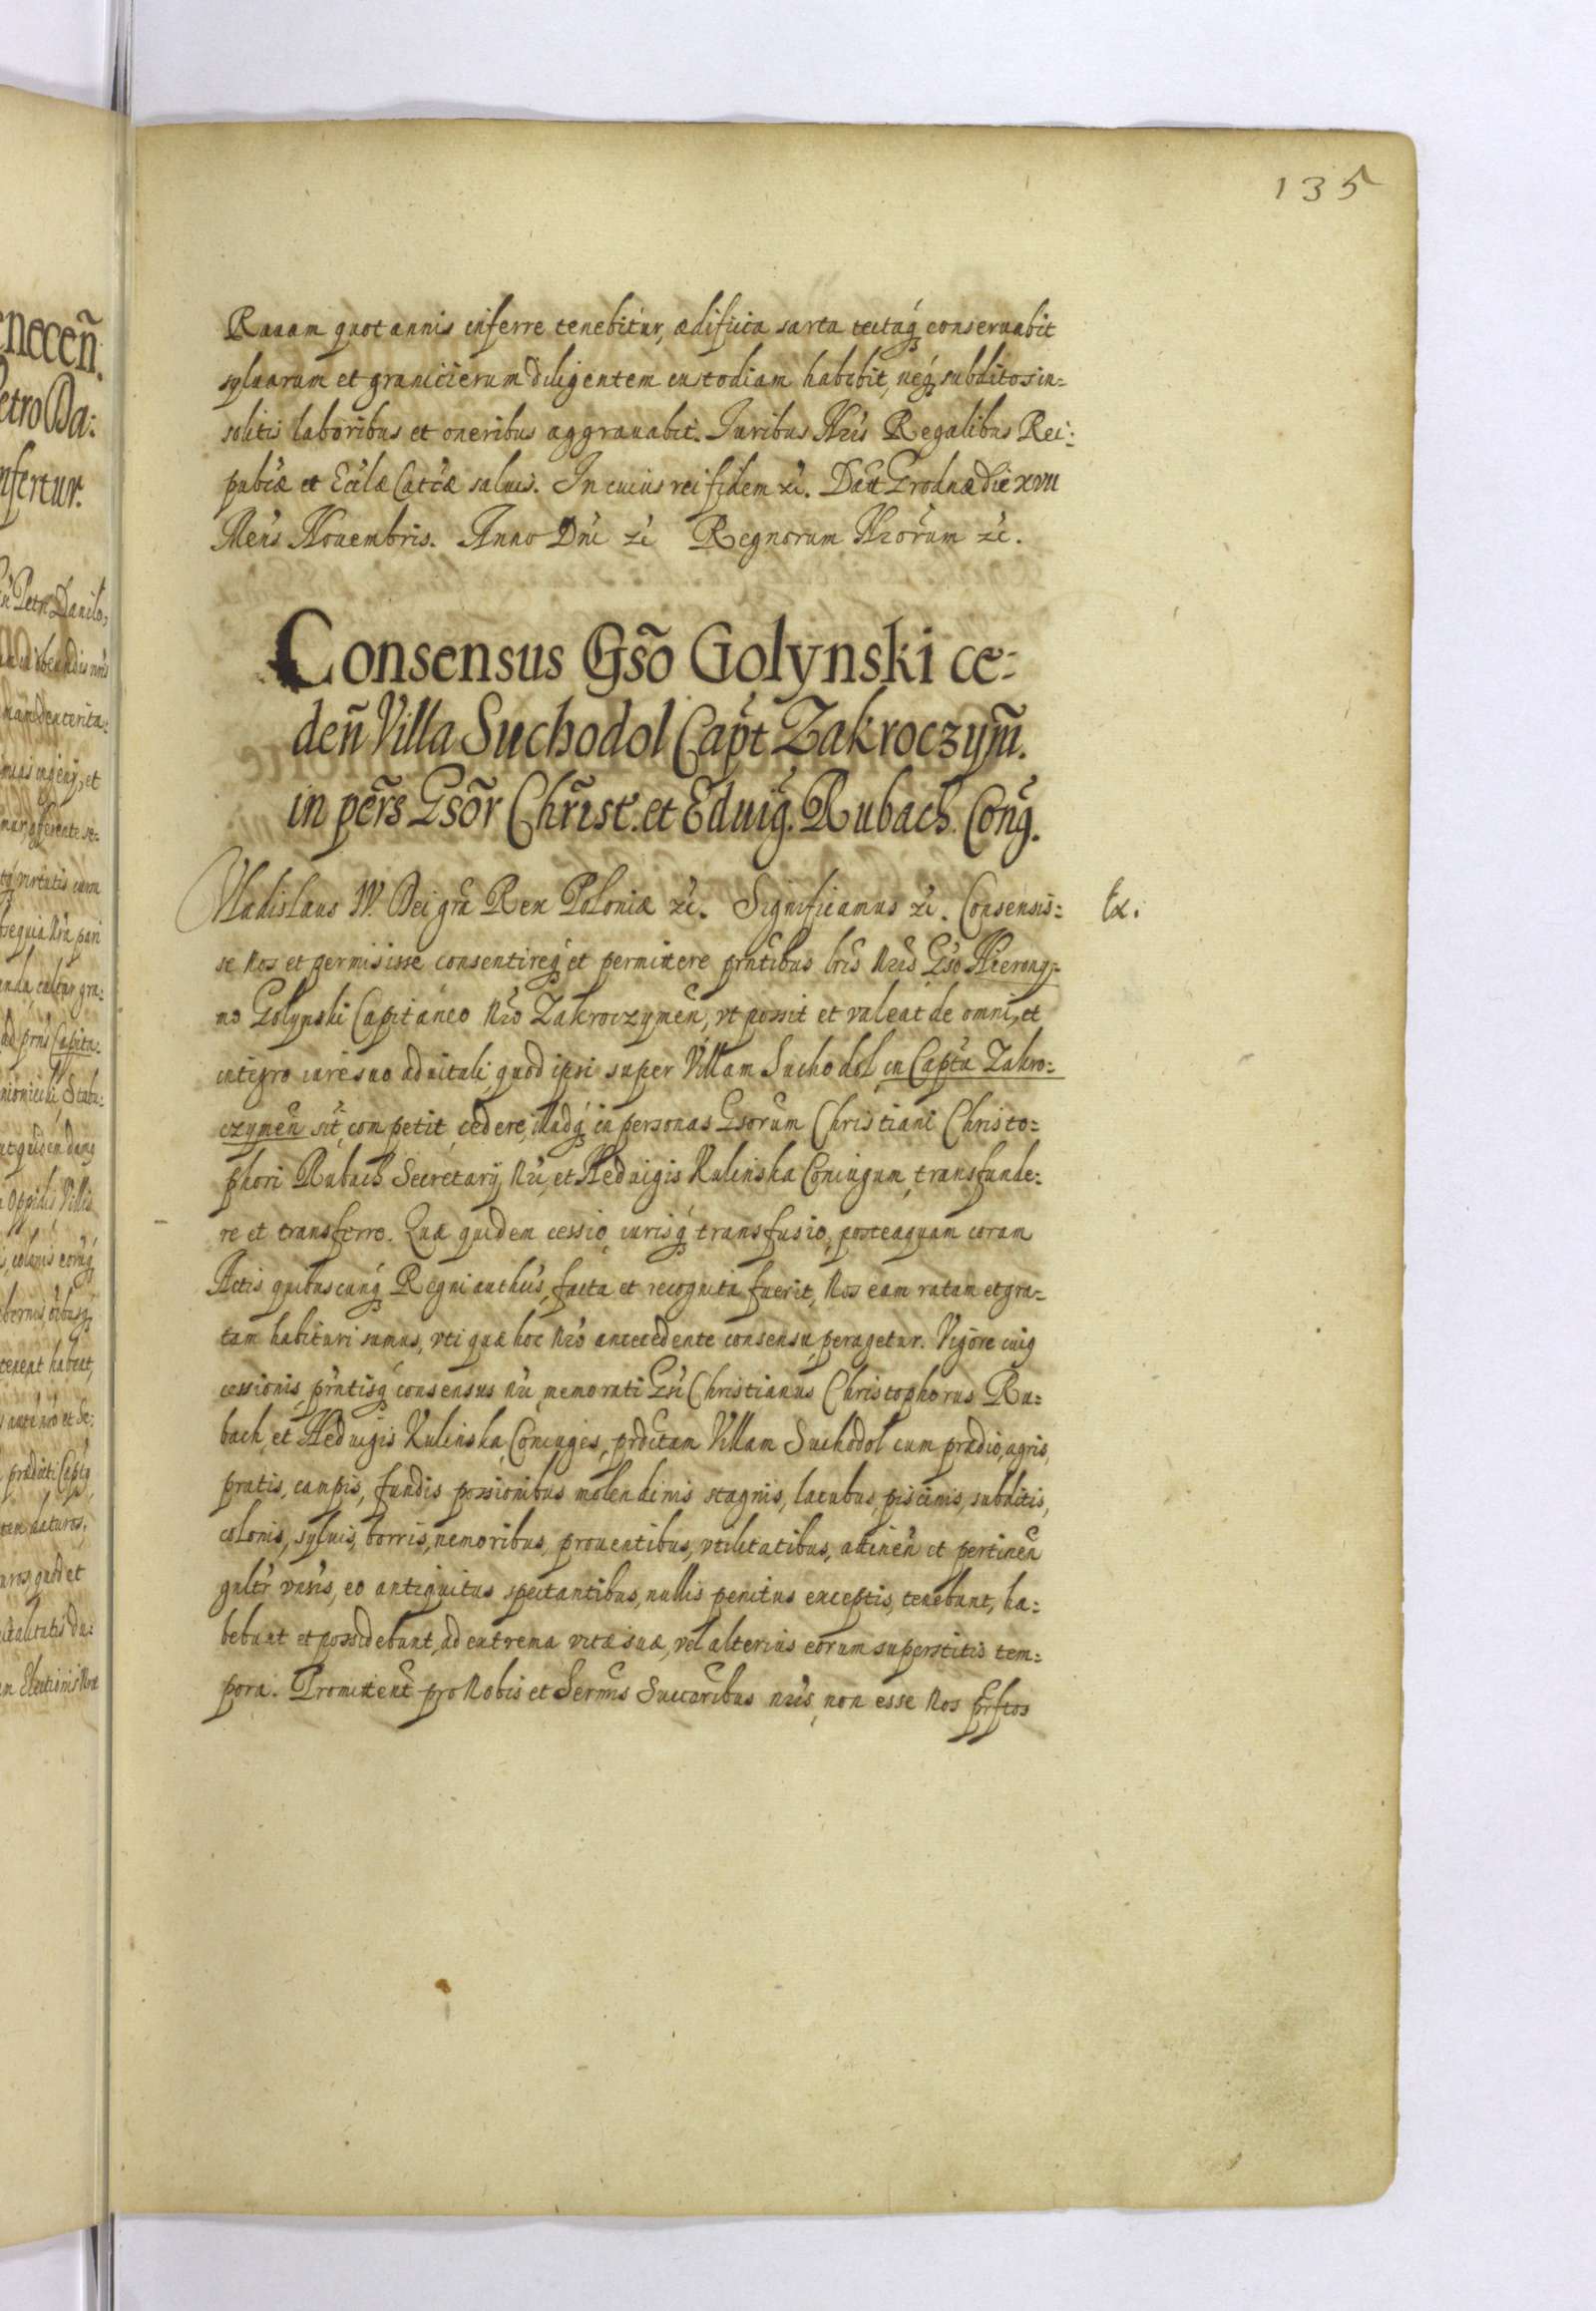 135
Rauam quot annis inferre tenebitur, ædificia sarta tectaq́ conseruabit
syluarum et granicierum diligentem custodiam habebit, neq́ subditos in-
solitis laboribus et oneribus aggrauabit. Iuribus Nr̃is Regalibus Rei-
pub̃cæ et Ecc̃læ Catc̃æ saluis. In cuius rei fidem zc̃. Datt Grodnæ die XVII
Mens̃ Nouembris. Anno Dñi zc̃ Regnorum Nr̃orum zc̃.
Consensus Gs̃o Golynski ce-
deñ Villa Suchodol Cap̃t Zakroczym̃.
in per̃s Gsõr Chr̃ist. et Eduig̃. Rubach. Cong̃.
Vladislaus IV. Dei gr̃a Rex Poloniæ zc̃. Significamus zc̃. Consensis-
tx.
se Nos et permisisse consentireq́ et permittere pr̃ntibus lr̃is Nr̃is Gs̃o Hierony-
mo Golynski Capitaneo Nr̃o Zakroczymeñ, vt possit et valeat de omni, et
integro iure suo aduitali, quod ipsi super Villam Suchodol, in Capt̃u Zakro-
czymeñ sit̃, competit, cedere, illudq́ in personas Gsorũm Christiani Christo-
phori Rubach Secretarij Nr̃i, et Heduigis Kulinska Coniugum, transfunde-
re et transferre. Quæ quidem cessio, iurisq́ transfusio, posteaquam coram
Actis quibuscunq́ Regni autheñs, facta et recognita fuerit, Nos eam ratam et gra-
tam habituri sumus, vti quæ hoc Nr̃o antecedente consensu, peragetur. Vigore cuiꝯ
cessionis, pr̃ntisq́ consensus nr̃i, memorati Gs̃i Christianus Christophorus Ru-
bach, et Heduigis Kulinska, Coniuges, prdc̃tam Villam Suchodol cum prædio, agris,
pratis, campis, fundis possionibus molendinis stagnis, lacubus, piscinis, subditis,
colonis, syluis, borris, nemoribus, prouentibus, vtilitatibus, attineñ et pertineñ
gnltr̃ vnĩs, eo antiquitus spectantibus, nullis penitus exceptis, tenebunt, ha-
bebunt et possidebunt, ad extrema vitæ suæ, vel alterius eorum superstitis tem-
pora. Promitteñt pro Nobis et Serm̃is Succoribus nr̃is, non esse Nos pr̃ftos